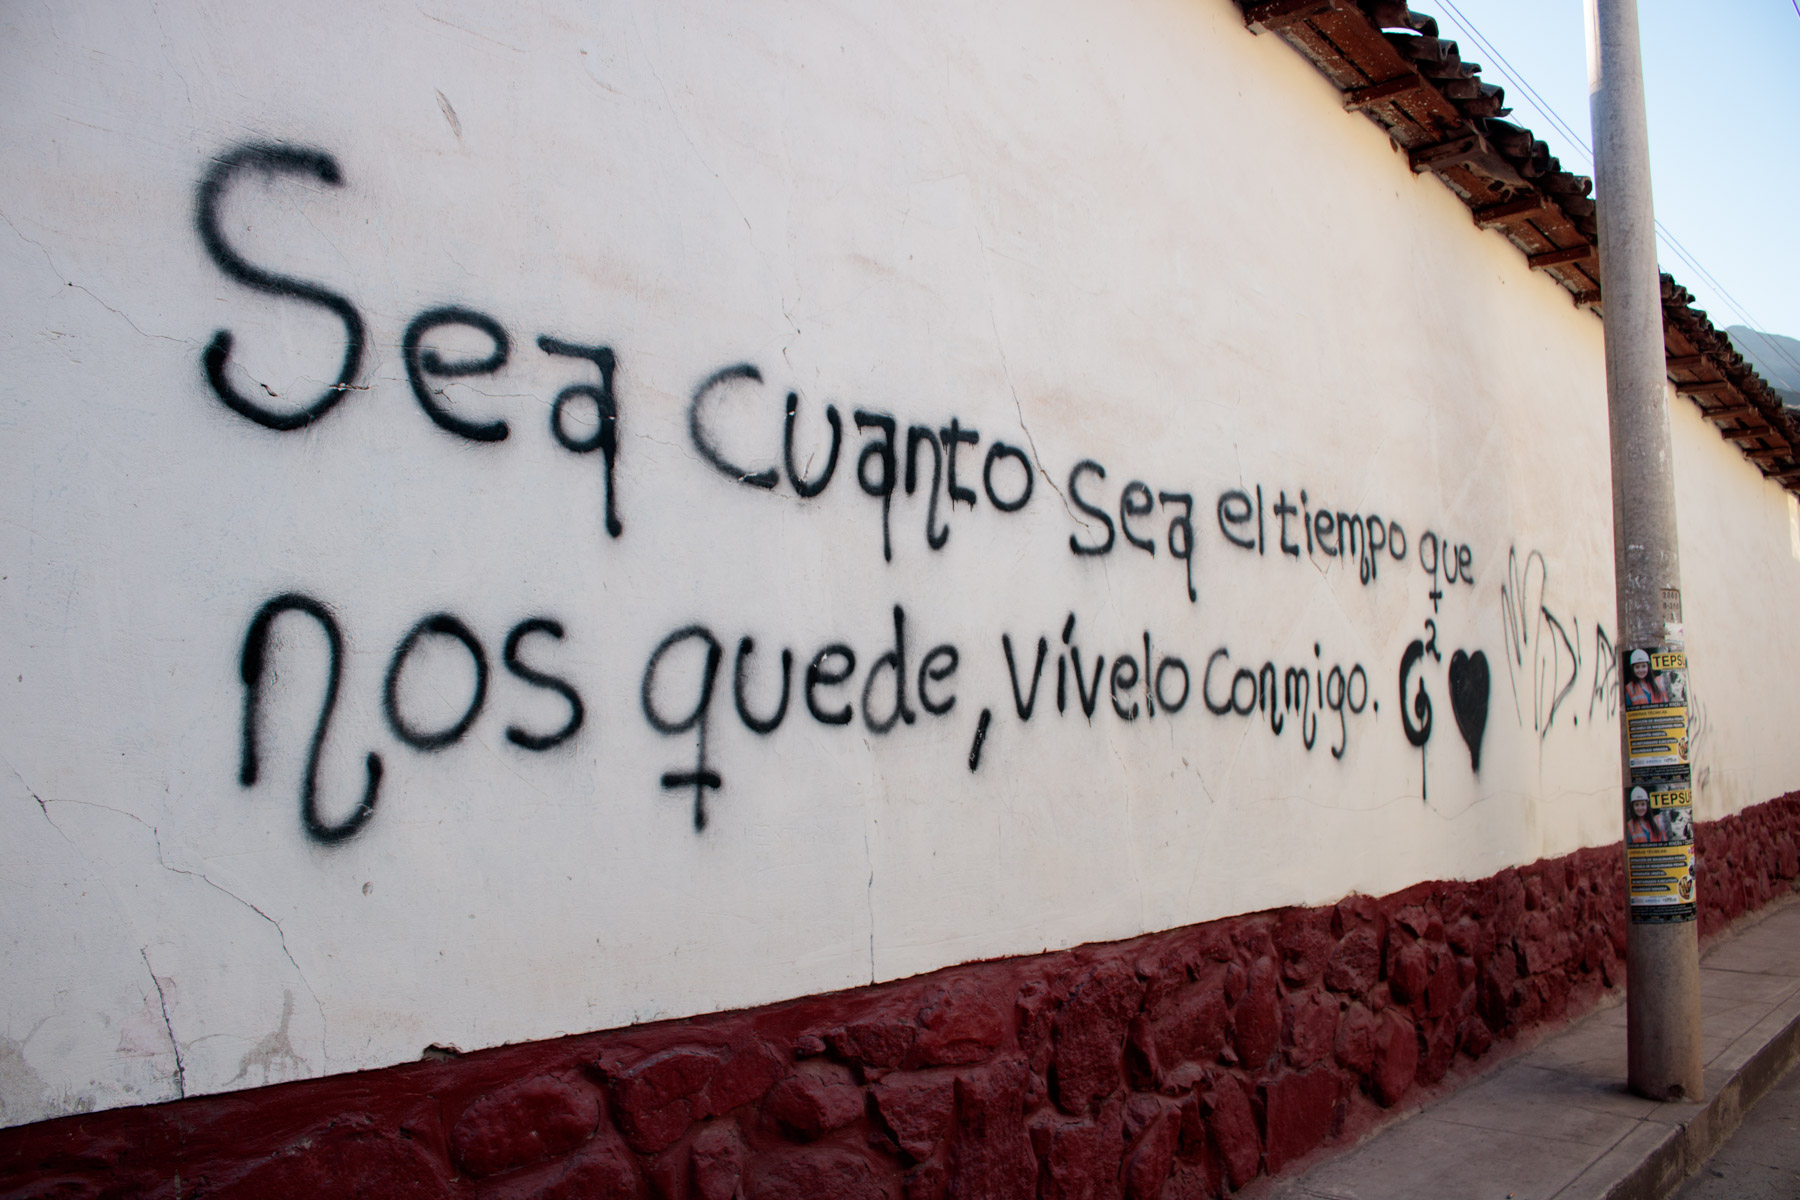 Sea cuanto sea el tiempo que
nos quede, vívelo conmigo. G² ♥
TEPSU
TEPSUR